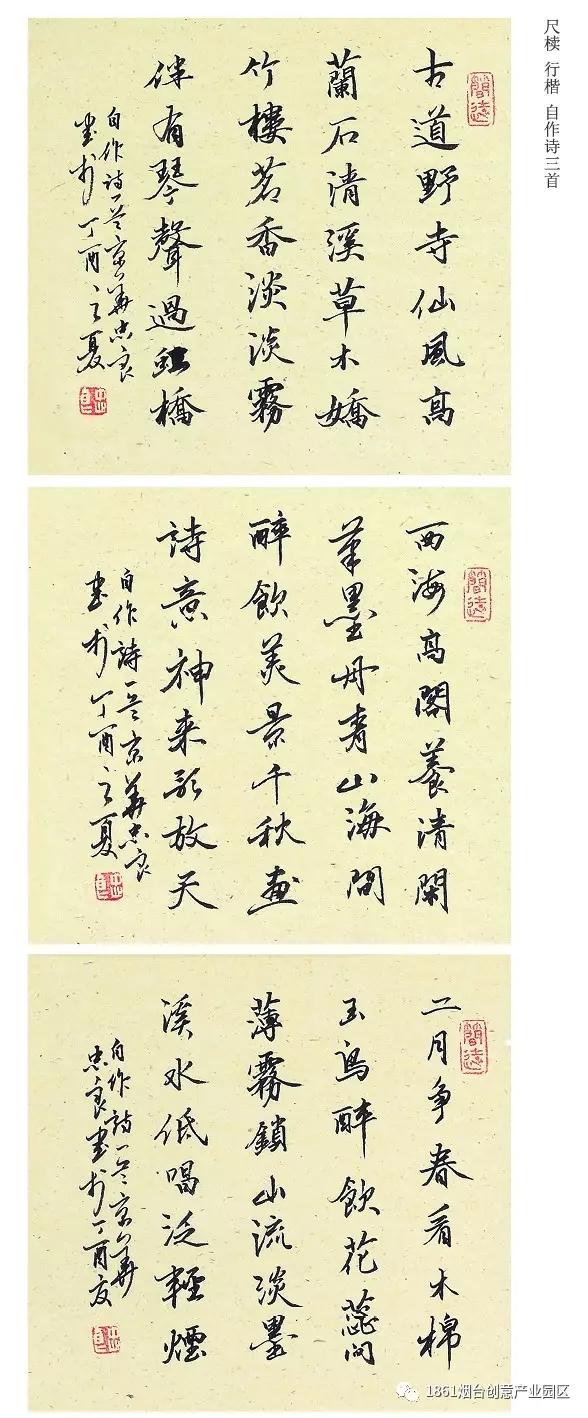 尺椟 行楷 自作诗三首
簡遠
古道野寺仙風高
蘭石清溪草木嬌
竹樓茗香淡淡霧
伴有琴聲過虹橋
自作詩一首京華忠良
書於丁酉之夏
簡遠
西海高閣養清閑
筆墨丹青山海間
醉飲美景千秋畫
詩意神来歌放天
自作詩一首京華忠良
書於丁酉之夏
簡遠
二月争春看木棉
玉鸟醉飲花蕊间
薄霧鎖山流淡墨
溪水低唱泛輕煙
自作詩一首京華
忠良書於丁酉夏
1861烟台创意产业园区